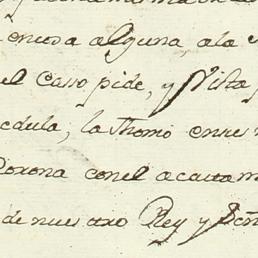 encusa alguna, a la
el Caso pide, y Vista
edula, la thomó en su
Corona con el acatam
de nuestro Rey y Señ